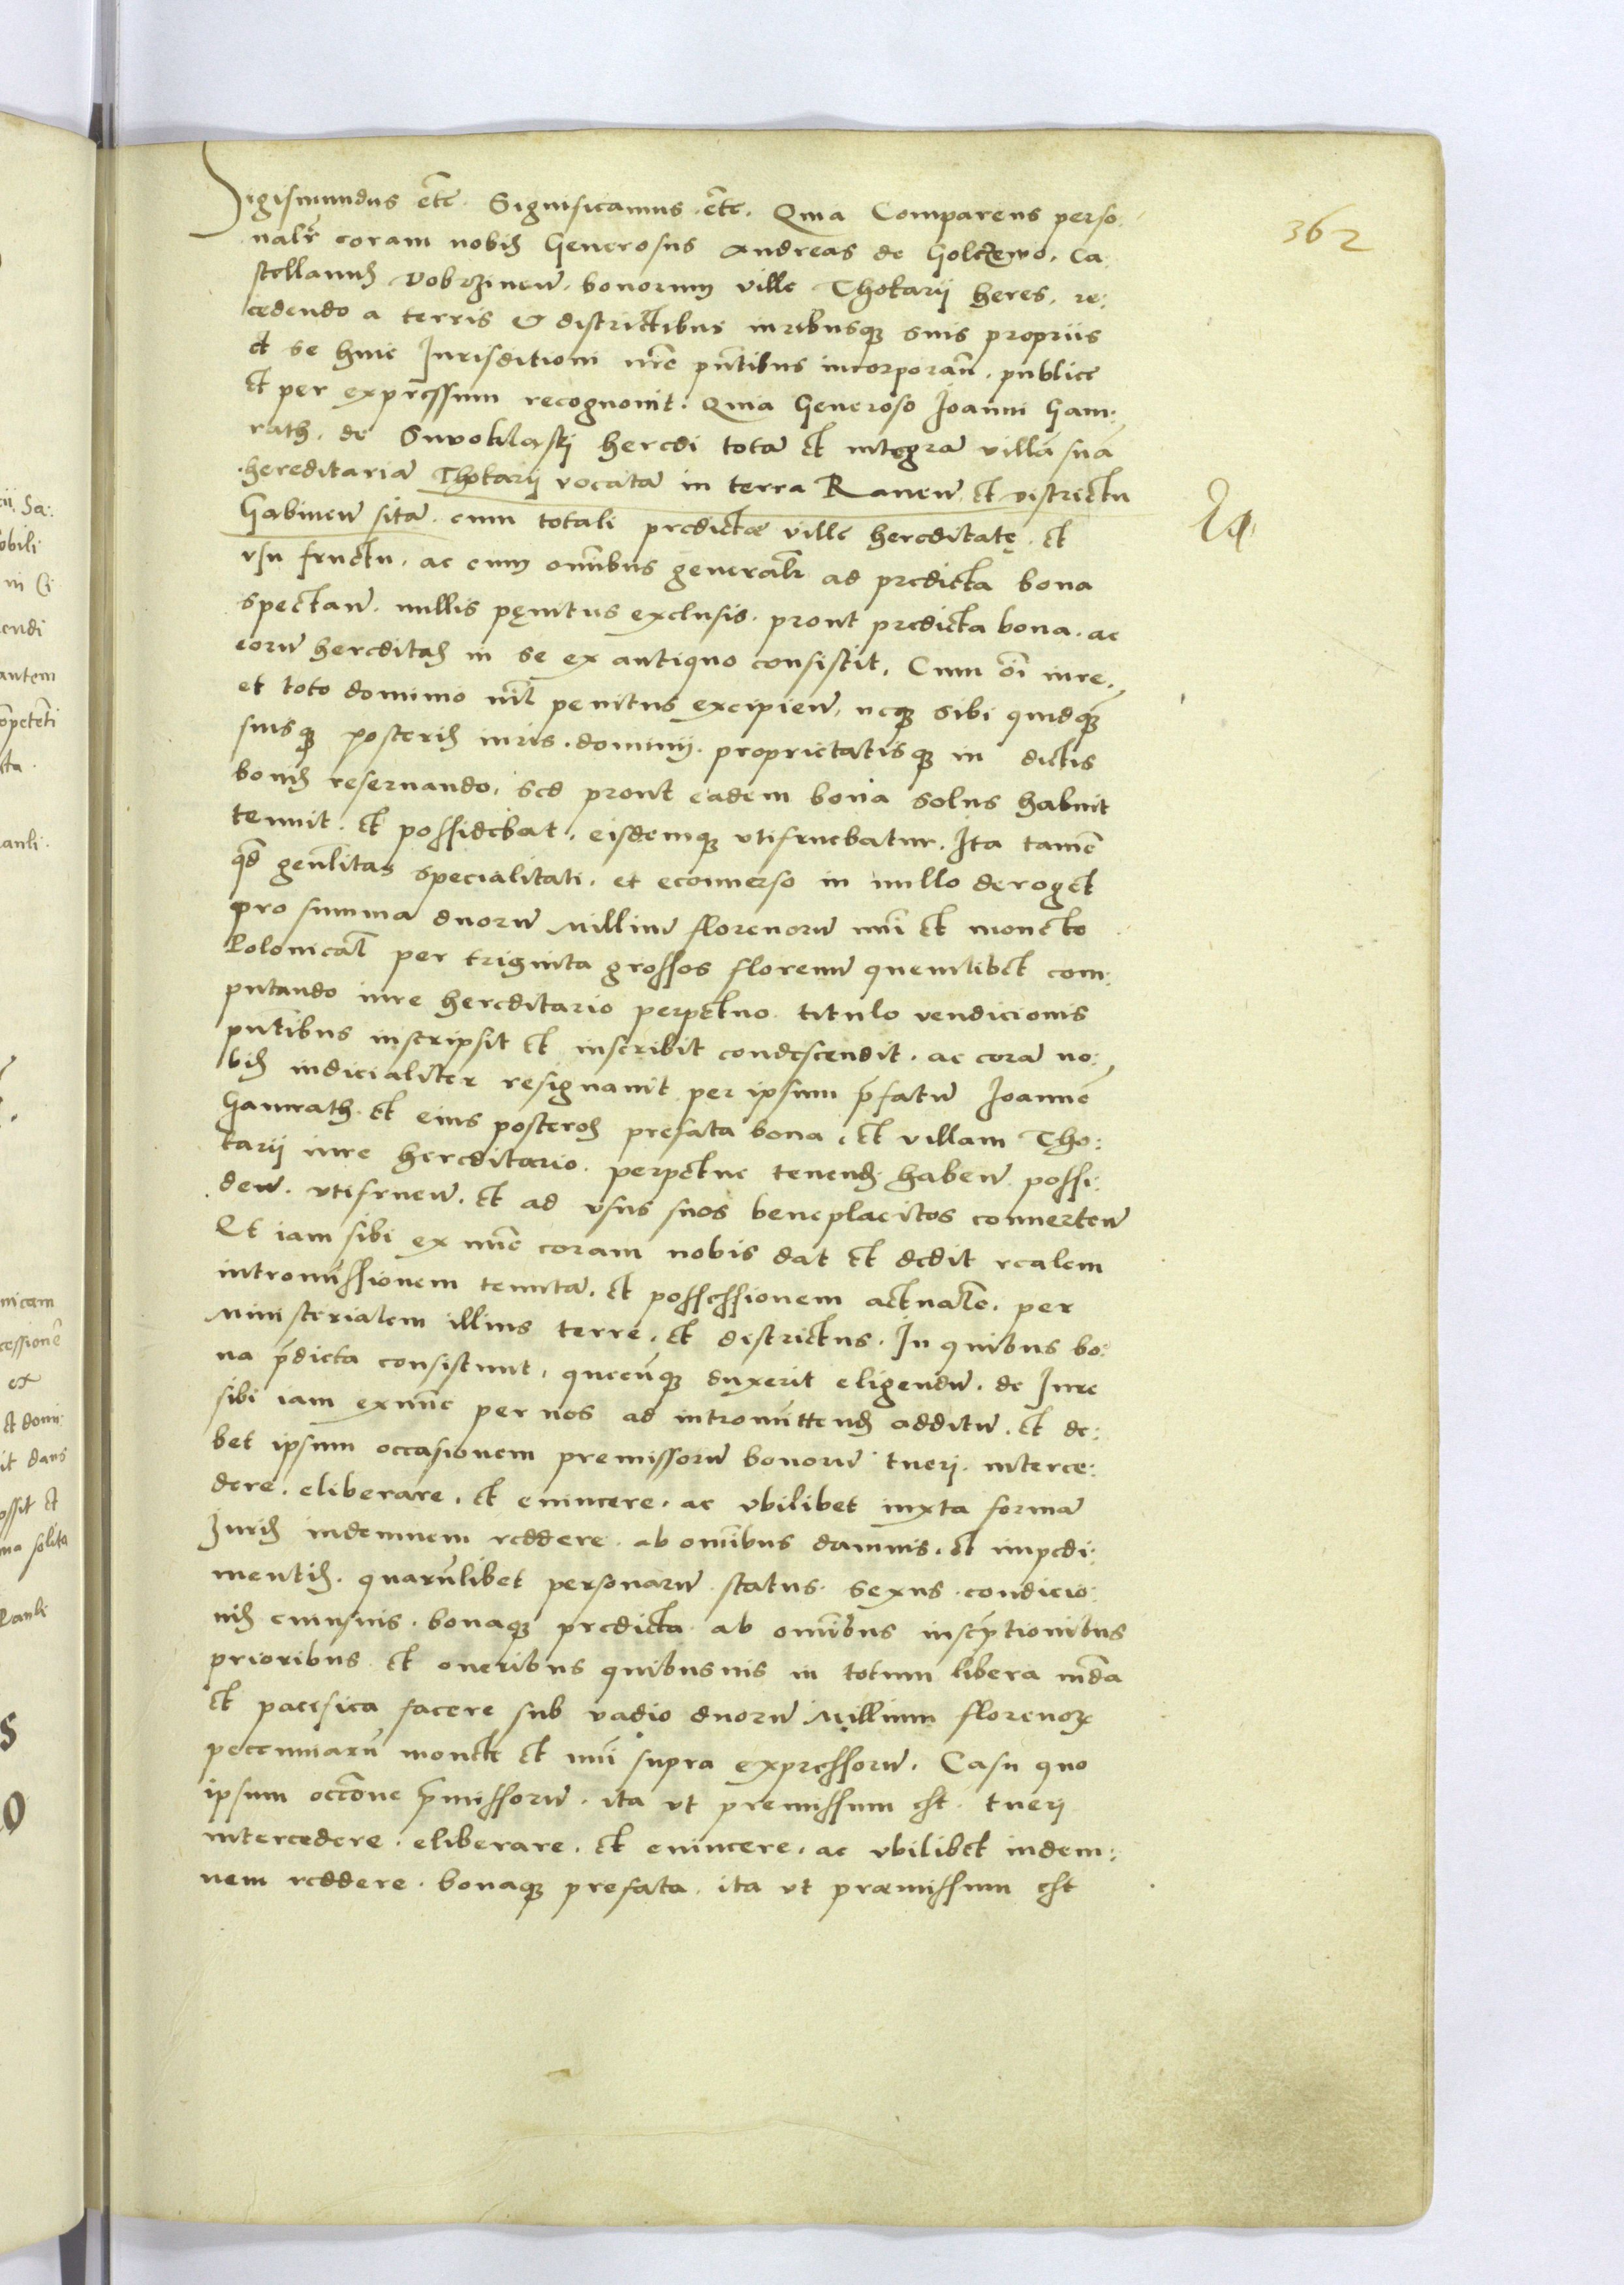 362
Sigismundus etc̄. Significamus etc̄. Quia Comparens perso:
nalr̄ coram nobis Generosus Andreas de Golczewo, Ca:
stellanus Dobrzinen̄. bonorum ville Thokarij heres, re:
cedendo a terris & districtibus iuribusq; suis propriis
et se huic Jurisditioni nr̄e pn̄tibus incorporan̄. publice
et per expressum recognouit. Quia Generoso Joanni Gam:
rath. de heredi totā et integrā villā suā
hereditariā Thokarij vocatā in terra Rauen̄ et districtu
Gabinen̄ sitā. cum totali predictæ ville hereditatę. et
vsu fructu. ac cum om̄ibus generalr̄ ad predicta bona
spectan̄. nullis pęnitus exclusis. prout predicta bona. ac
eorū hereditas in se ex antiquo consistit. Cum om̄i iure,
et toto dominio nil penitus excipien̄, neq; sibi quidq̄
suisq; posteris iuris. dominij. proprietatisq; in dictis
bonis reseruando, sed prout eadem bona solus habuit
tenuit. et possidebat. eisdemq; vtifruebatur. Ita tamē
qd̄ gen̄litas specialitati. et econuerso in nullo deroget
pro summa duorū Millium florenorū nūi et monete
Polonicał per triginta grossos florenū quemlibet com:
putando iure hereditario perpetuo titulo vendicionis
pn̄tibus inscripsit et inscribit condescendit. ac corā no:
bis iudicialiter resignauit per ipsum p̄fatū Joannē
Gamrath. et eius posteros prefata bona, et villam Tho:
karij iure hereditario. perpetue tenend̄ haben̄ possi:
den̄. vtifruen̄. et ad vsus suos beneplacitos conuerten̄
Et iam sibi ex nūc coram nobis dat et dedit realem
intromissionem tenutā. et possessionem actualē. per
Ministerialem illius terre. et districtus. In quibus bo:
na p̄dicta consistunt, quecūq; duxerit eligendū. de Jure
sibi iam exnūc per nos ad intromittend̄ additū. et de:
bet ipsum occasionem premissorū bonorū tueri. interce:
dere. eliberare. et euincere. ac vbilibet iuxta formā
Juris indemnem reddere. ab om̄ibus damnis. et impedi:
mentis. quarūlibet personarū status. sexus. condicio:
nis cuiusuis. bonaq; predicta ab om̄ibus inscr̄ptionibus
prioribus et oneribus quibusuis in totum libera mūda
et pacifica facere sub vadio duorū Millium florenoꝝ
pecuniarū monete et nūi supra expressorū. Casu quo
ipsum occōne p̄missorū. ita vt premissum est. tueri
intercedere. eliberare. et euincere. ac vbilibet indem:
nem reddere. bonaq; prefata. ita vt præmissum est